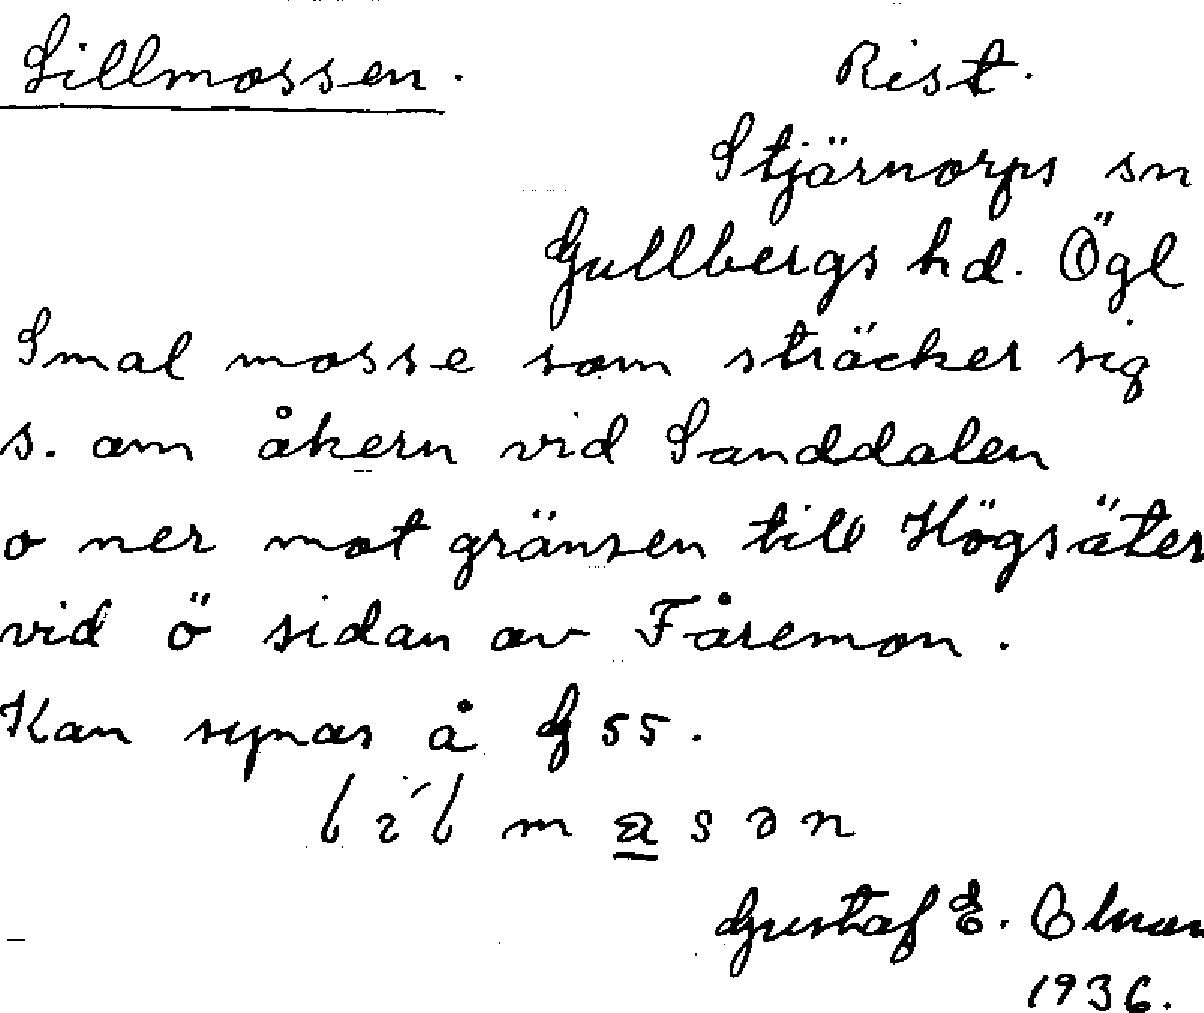 Lillmossen. Rist.
Stjärnorps sn
Gullbergs hd. Ögl
Smal mosse som sträcker sig
s. om åkern vid Sanddalen
o ner mot gränsen till Högsäter
vid ö sidan av Fåremon.
Kan synas å G 55.
l i ́ l m a s ə n
Gustaf E.
1936.